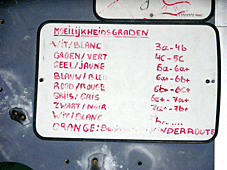 MOEILIJKHEIDSGRADEN
WIT/BLANC 3a-4b
GROEN/VERT 4c-5c
GEEL/JAUNE 6a-6a+
BLAUW/BLEU 6a+-6b+
ROOD/ROUGE 6b-6c+
GRIJS/GRIS 6c+-7a+
ZWART/NOIR 7a+-
WIT/BLANC
ORANGE: KINDERROUTE